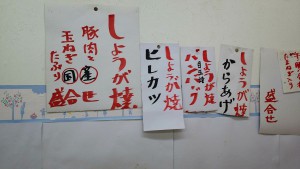 しょうが焼
豚肉と
玉ねぎ
たっぷり
国産
盛合せ
しょうが焼
ヒレカツ
しょうが焼
ハンバーグ
しょうが焼
からあげ
盛合せ